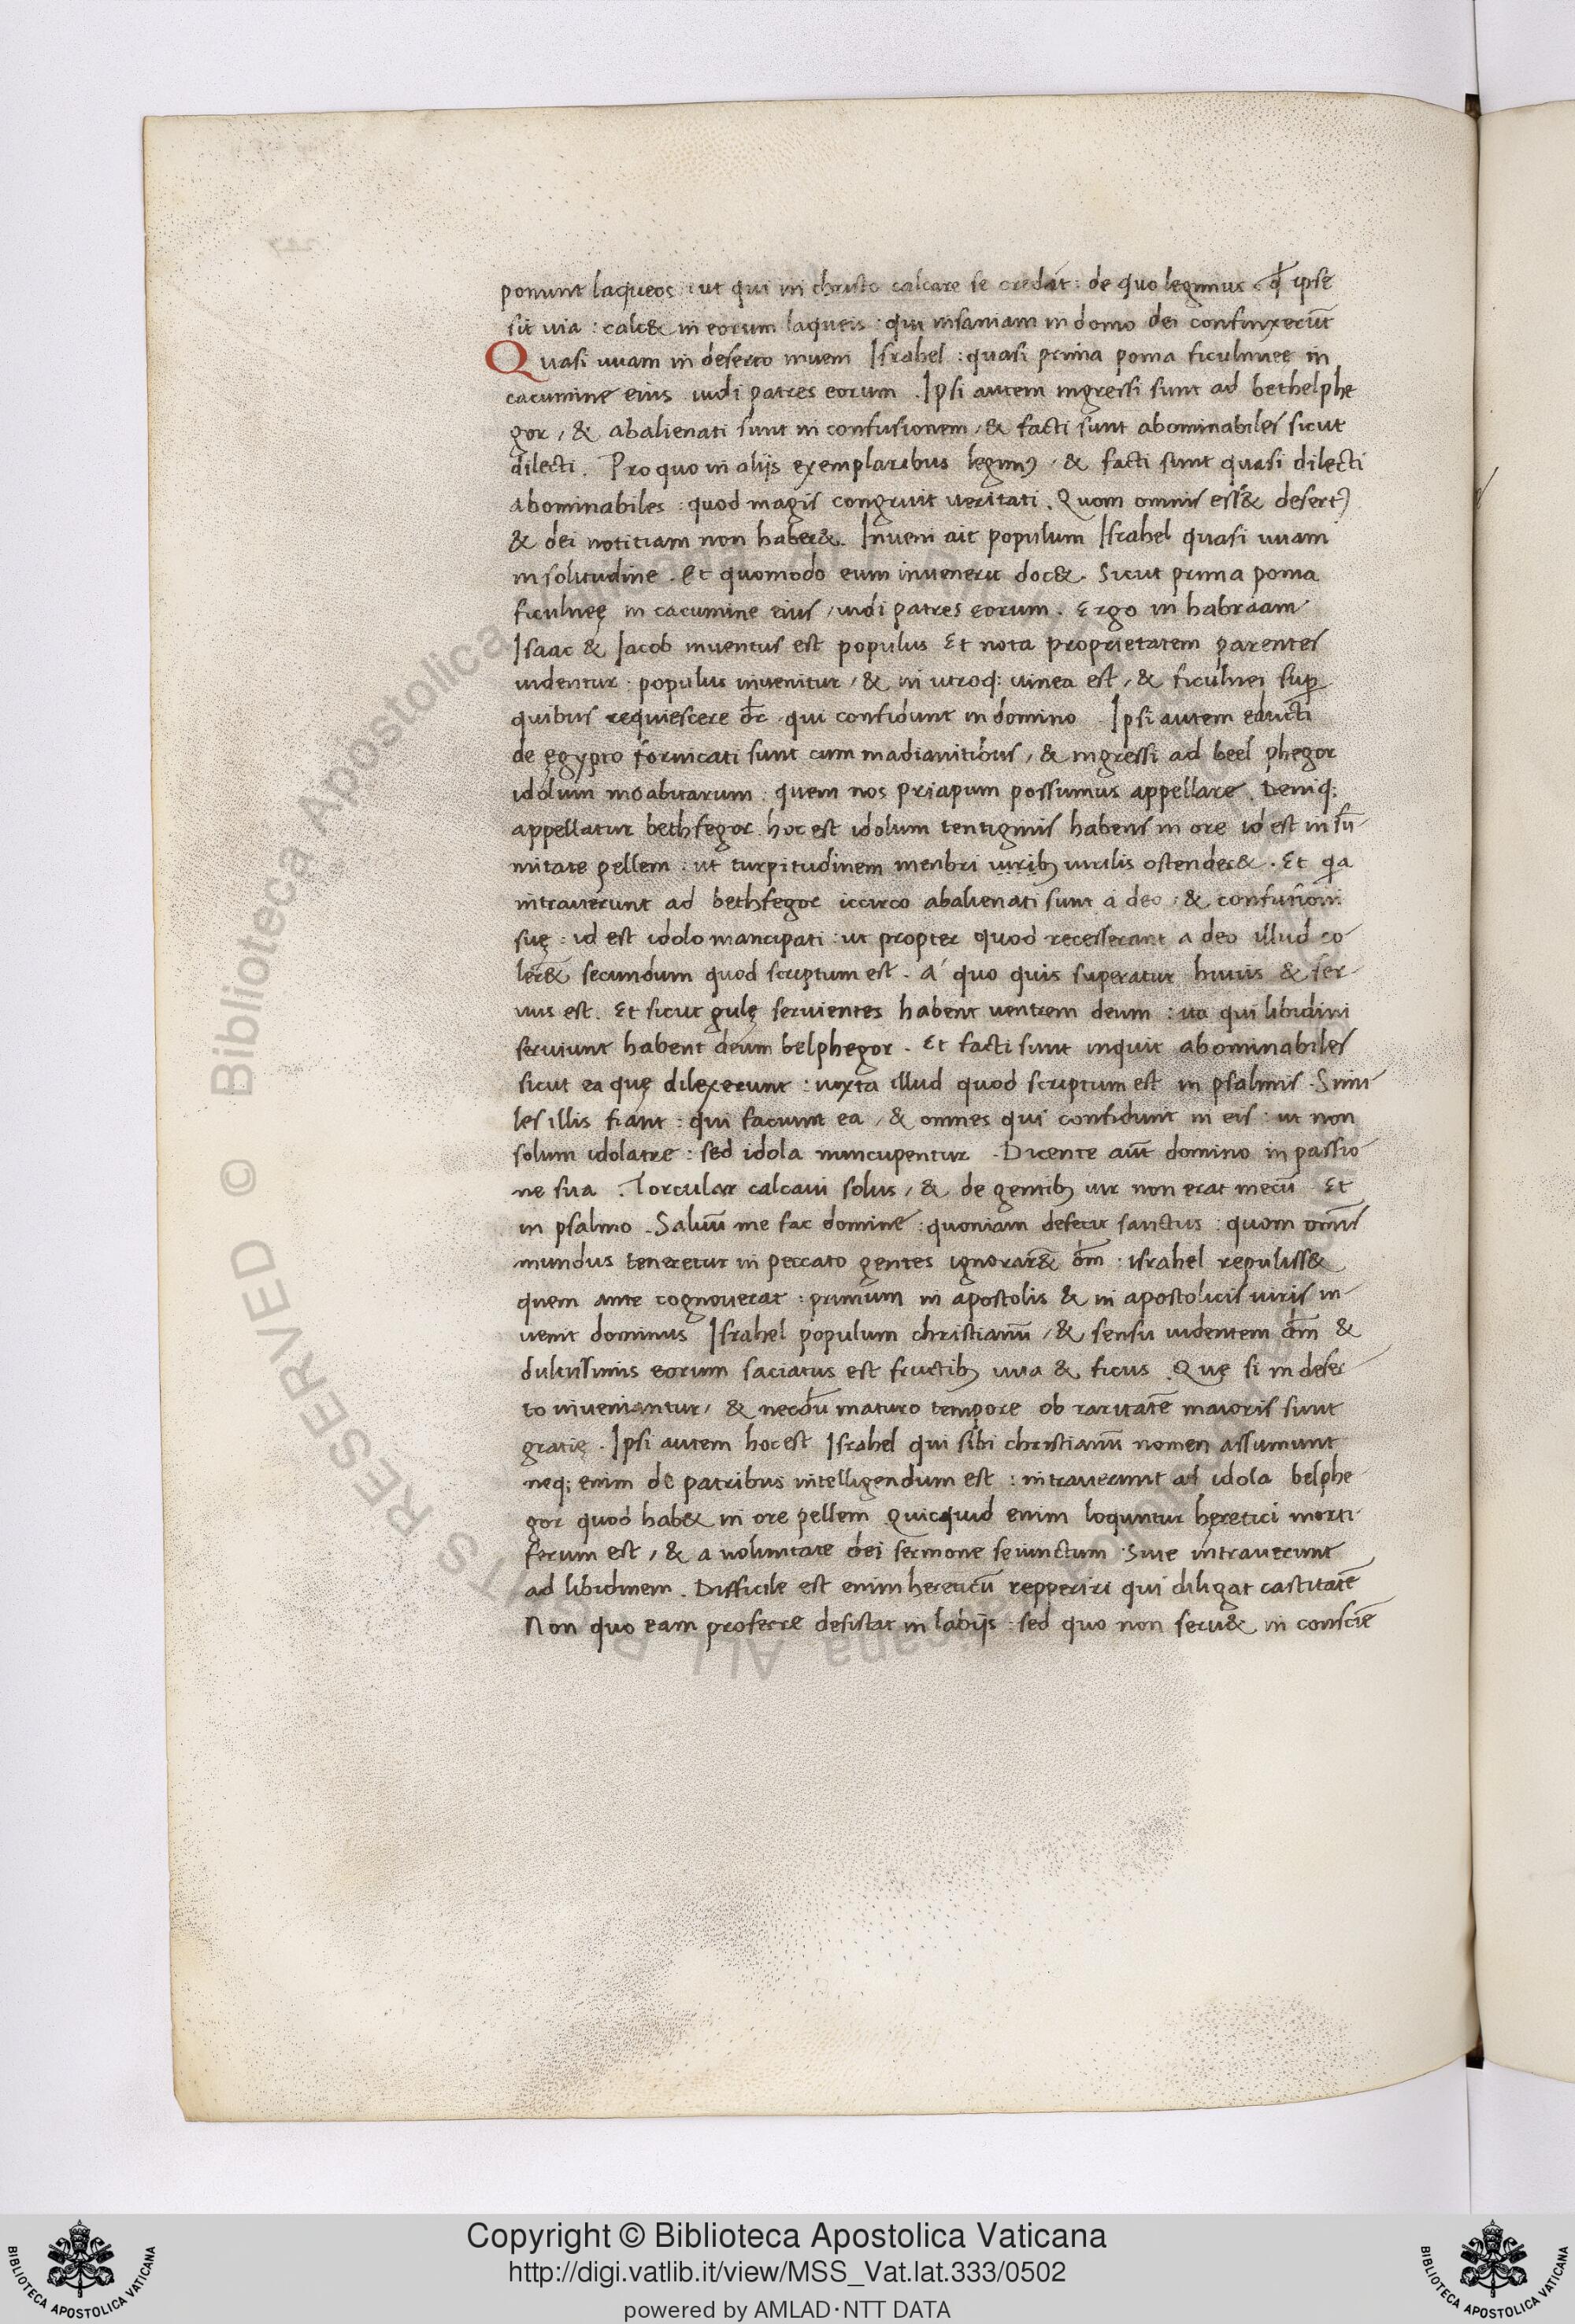 ponunt laqueos : ut qui in christo calcare se credāt : de quo legimus . qđ ipse
sit uia : calc& in eorum laqueis : qui insaniam in domo dei confinxerūt
Quasi uuam in deserto inueni Israhel : quasi prima poma ficulneę in
cacumine eius uidi patres eorum . Ipsi autem ingressi sunt ad bethelphe
gor , & abalienati sunt in confusionem , & facti sunt abominabiles sicut
dilecti . Pro quo in alijs exemplaribus legimꝰ , & facti sunt quasi dilecti
abominabiles : quod magis congruit ueritati . Quom omnis ess& desertꝰ
& dei notitiam non haber& . Inueni ait populum Israhel quasi uuam
in solitudine . Et quomodo eum inuenerit doc& . Sicut prima poma
ficulneę in cacumine eius , uidi patres eorum . Ergo in habraam
Isaac & Jacob inuentus est populus Et nota proprietatem parentes
uidentur : populus inuenitur , & in utroq; uinea est , & ficulnei sup̄
quibus requiescere dr̄ , qui confidunt in domino . Ipsi autem educti
de ęgypto fornicati sunt cum madianitibus , & ingressi ad beel phegor
idolum moabitarum : quem nos priapum possumus appellare . Deniq;
appellatur bethfegor hoc est idolum tentiginis habens in ore id est in sū
mitate pellem : ut turpitudinem menbri uiribꝫ uirilis ostender& . Et q̄a
intrauerunt ad bethfegor iccirco abalienati sunt a deo : & confusioni
suę : id est idolo mancipati : ut propter quod recesserant a deo illud co
ler& secundum quod scriptum est . A quo quis superatur huius & ser
uus est . Et sicut gulę seruientes habent uentrem deum : ita qui libidini
seruiunt habent deum belphegor . Et facti sunt inquit abominabiles
sicut ea quę dilexerunt : iuxta illud quod scriptum est in psalmis . Simi
les illis fiant : qui faciunt ea , & omnes qui confidunt in eis : ut non
solum idolatre : sed idola nuncupentur . Dicente aūt domino in passio
ne sua . Torcular calcaui solus , & de gentibꝫ uir non erat mecū Et
in psalmo . Saluū me fac domine : quoniam defecit sanctus : quom omīs
mundus teneretur in peccato gentes ignorar& dm̄ : israhel repuliss&
quem ante cognouerat : primum in apostolis & in apostolicis uiris in
uenit dominus Israhel populum christianū , & sensu uidentem dm̄ &
dulcissimis eorum saciatus est fructibꝫ uua & ficus . Quę si in deser
to inueniantur , & necdū maturo tempore ob raritatē maioris sunt
gratię . Ipsi autem hoc est Israhel qui sibi christianū nomen assumunt
neq; enim de patribus intelligendum est : intrauerunt ad idola belphe
gor quod hab& in ore pellem quicquid enim loquntur hęretici morti
ferum est , & a uoluntate dei sermone seiunctum . Siue intrauerunt
ad libidinem . Difficile est enim hereticū repperiri qui diligat castitatē
Non quo eam proferre desistat in labijs : sed quo non seru& in consciē
© Biblioteca Apostolica Vaticana
ALL RIGHTS RESERVED
Copyright © Biblioteca Apostolica Vaticana
http://digi.vatlib.it/view/MSS_Vat.lat.333/0502
powered by AMLAD·NTT DATA
BIBLIOTECA APOSTOLICA VATICANA
BIBLIOTECA APOSTOLICA VATICANA